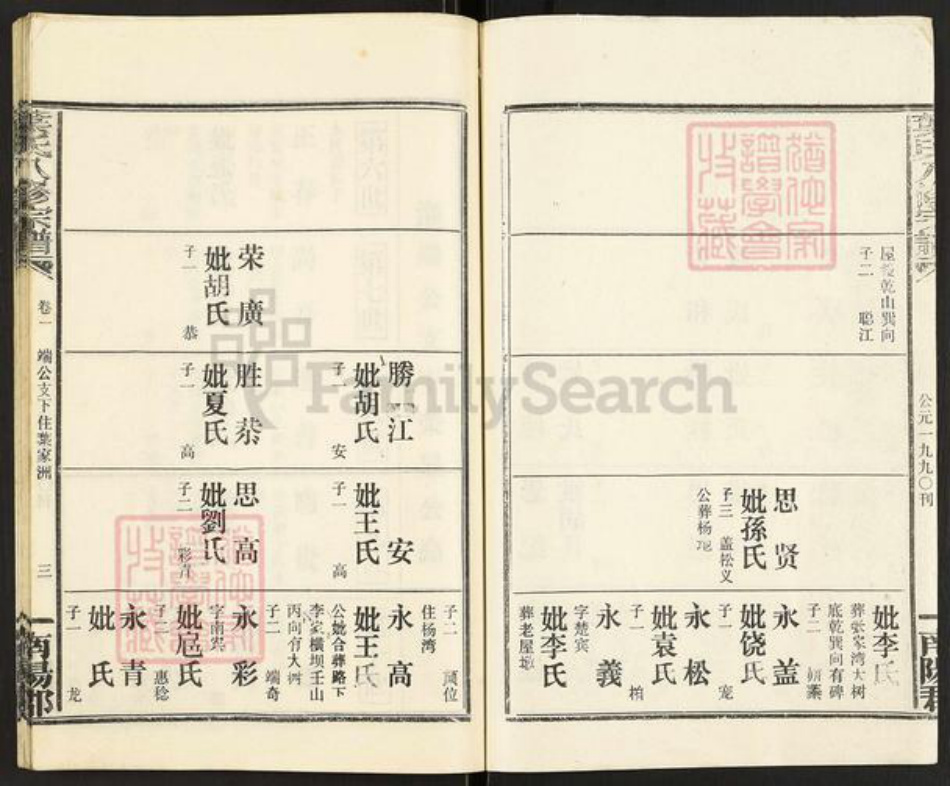 屋後乾山巽向
子二 聪江
思贤
妣孫氏
子三 盖松义
公葬杨
妣李氏
葬張家湾大树
底乾巽向有碑
子二
永盖
妣饶氏
子一 宠
永松
妣袁氏
子一 柏
永義
字楚宾
妣李氏
葬老屋
公元一九九〇刊
南陽郡
荣廣
妣胡氏
子一 恭
勝江
妣胡氏
子一 安
胜恭
妣夏氏
子一 高
安
妣王氏
子一 高
思高
妣劉氏
子二 彩青
子二
住杨湾
永高
妣王氏
公妣合葬路下
李家横坝壬山
丙向有大树
子二 端奇
永彩
字南
妣扈氏
子二 惠稔
永青
妣氏
子一 龙
葉氏八修宗譜
卷一
端公支下住葉家洲
三
南陽郡
FamilySearch